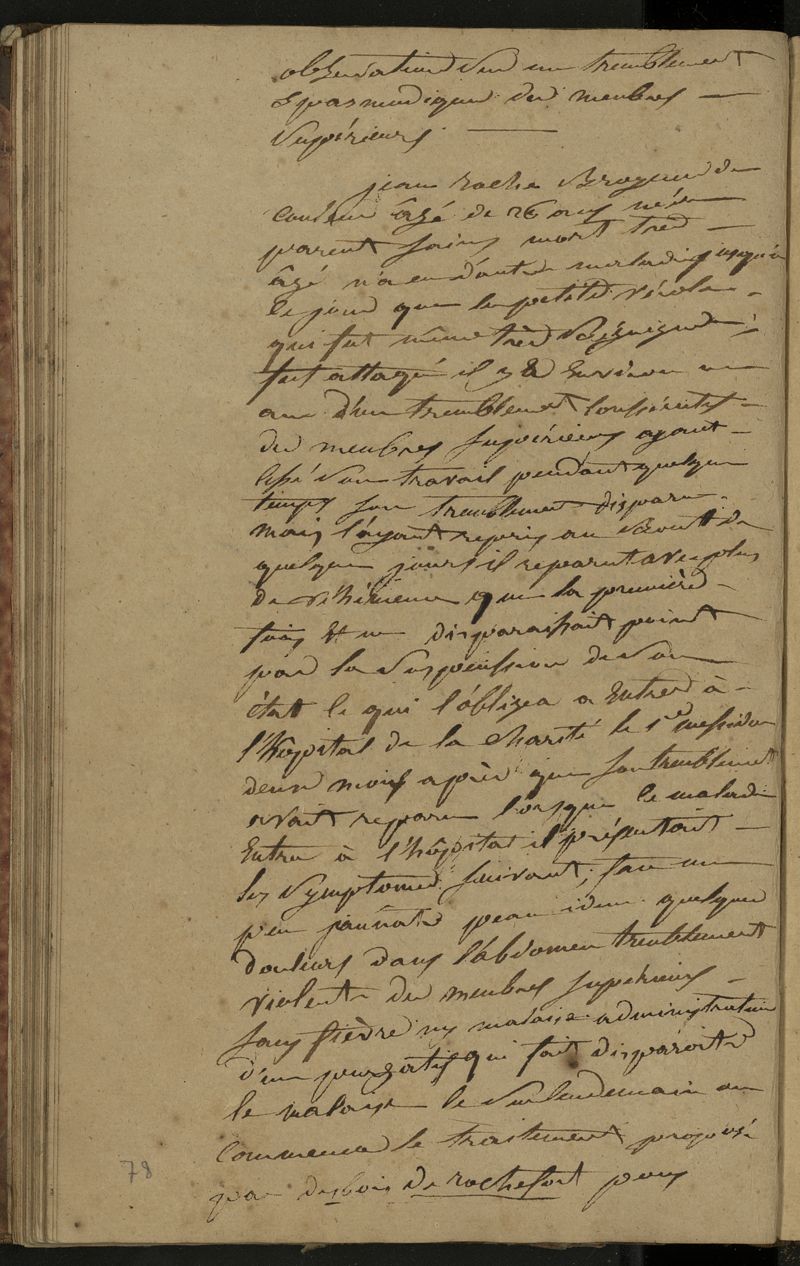 observation sur un tremblement
spasmodique des membres
supérieurs
jean roche Broyeur de
couleur âgé de 26 ans né de
parent sains mort très
âgé n'a eu d'autre maladie jusqu'à
ce jour que la petite vérole
qui fut même très bénigne
fut attaqué il y a environ un
an d'un tremblement
des membres supérieurs ayant
cessé son travail pendant quelque
temps son tremblement disparu
mais l'ayant repris au bout de
quelque jours il reparut avec plus
de véhémence que la première
fois et ne disparaissait point
par la suspension de son
état ce qui l'obligea a entrer à
l'hôpital de la charité le 1er messidor
deux mois après que son tremblement
avait reparu lorsque le malade
entra à l'hôpital il présentait
les symptomes suivant, face un
peu jaunâtre peau idem quelque
douleurs dans l'abdomen tremblement
violent des membres supérieurs
sans fièvre ny malaise administration
d'un purgatif qui fait disparoitre
le malaise le surlendemain on
commence le traitement proposé
par desbois de rochefort pour
78